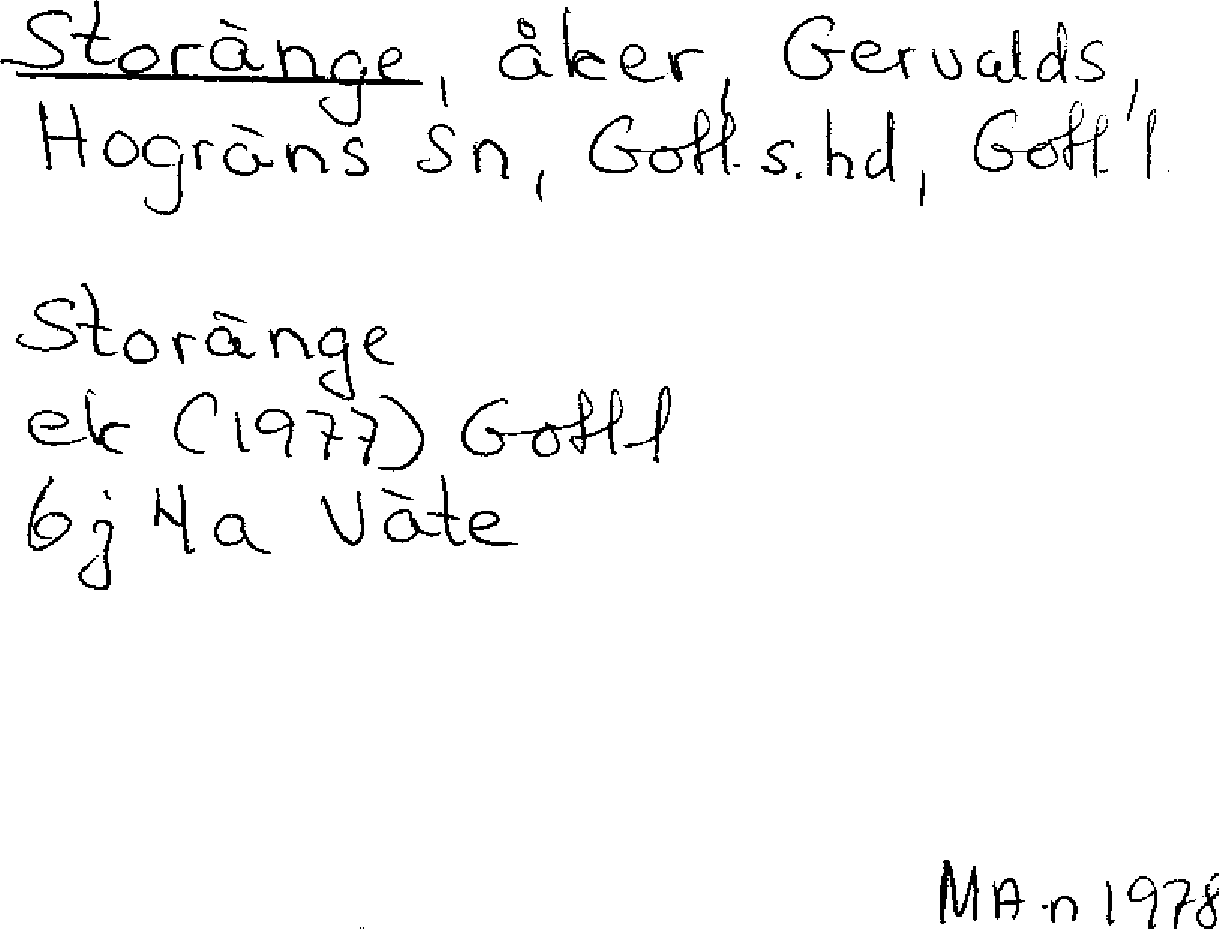 Storänge, åker, Gervalds,
Hogräns sn, Gotl. s. hd, Gotl.
Storänge
ek (1977) Gotl
6j 4a Väte
MA-n 1978